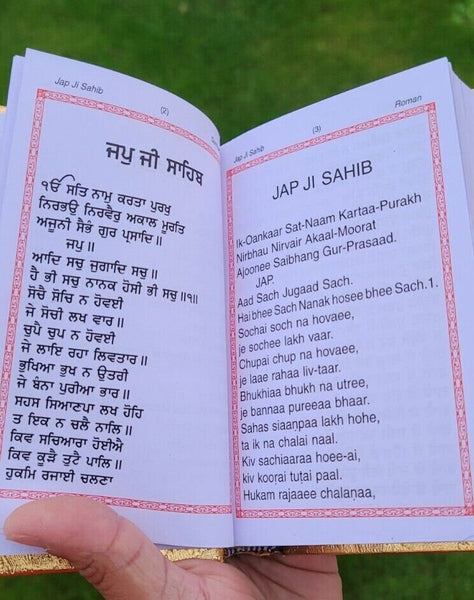 Jap Ji Sahib
(2)
ਜਪੁ ਜੀ ਸਾਹਿਬ
ੴ ਸਤਿ ਨਾਮੁ ਕਰਤਾ ਪੁਰਖੁ
ਨਿਰਭਉ ਨਿਰਵੈਰੁ ਅਕਾਲ ਮੂਰਤਿ
ਅਜੂਨੀ ਸੈਭੰ ਗੁਰ ਪ੍ਰਸਾਦਿ॥
ਜਪੁ॥
ਆਦਿ ਸਚੁ ਜੁਗਾਦਿ ਸਚੁ॥
ਹੈ ਭੀ ਸਚੁ ਨਾਨਕ ਹੋਸੀ ਭੀ ਸਚੁ॥੧॥
ਸੋਚੈ ਸੋਚਿ ਨ ਹੋਵਈ
ਜੇ ਸੋਚੀ ਲਖ ਵਾਰ॥
ਚੁਪੈ ਚੁਪ ਨ ਹੋਵਈ
ਜੇ ਲਾਇ ਰਹਾ ਲਿਵਤਾਰ॥
ਭੁਖਿਆ ਭੁਖ ਨ ਉਤਰੀ
ਜੇ ਬੰਨਾ ਪੁਰੀਆ ਭਾਰ॥
ਸਹਸ ਸਿਆਣਪਾ ਲਖ ਹੋਹਿ
ਤ ਇਕ ਨ ਚਲੈ ਨਾਲਿ॥
ਕਿਵ ਸਚਿਆਰਾ ਹੋਈਐ
ਕਿਵ ਕੂੜੈ ਤੁਟੈ ਪਾਲਿ॥
ਹੁਕਮਿ ਰਜਾਈ ਚਲਣਾ
Jap Ji Sahib
(3)
Roman
JAP JI SAHIB
Ik-Oankaar Sat-Naam Kartaa-Purakh
Nirbhau Nirvair Akaal-Moorat
Ajoonee Saibhang Gur-Prasaad.
JAP.
Aad Sach Jugaad Sach.
Hai bhee Sach Nanak hosee bhee Sach.1.
Sochai soch na hovaee,
je sochee lakh vaar.
Chupai chup na hovaee,
je laae rahaa liv-taar.
Bhukhiaa bhukh na utree,
je bannaa pureeaa bhaar.
Sahas siaaṇpaa lakh hohe,
ta ik na chalai naal.
Kiv sachiaaraa hoee-ai,
kiv koorai tuṭai paal.
Hukam rajaaee chalaṇaa,